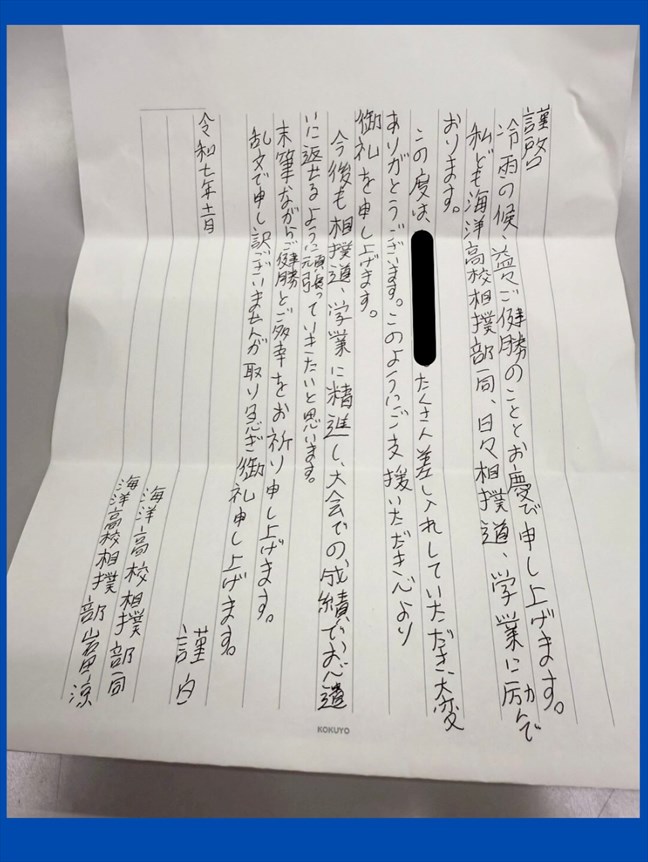 謹啓
冷雨の候、益々ご健勝のこととお慶び申し上げます。
私ども海洋高校相撲部一同、日々相撲道、学業に励んで
おります。
この度は
たくさん差し入れしていただき、大変
ありがとうございます。このようにご支援いただき心より
御礼を申し上げます。
今後も相撲道、学業に精進し、大会での成績でご恩
いに返せるように頑張っていきたいと思います。
末筆ながらご健勝とご多幸をお祈り申し上げます。
乱文で申し訳ございませんが取り急ぎ御礼申し上げます。
謹白
令和七年十一月
海洋高校相撲部一同
海洋高校相撲部 岩田涼
KOKUYO